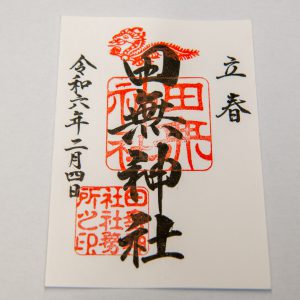 立春
田無神社
令和六年二月四日
田無神社
田無神社社務所之印